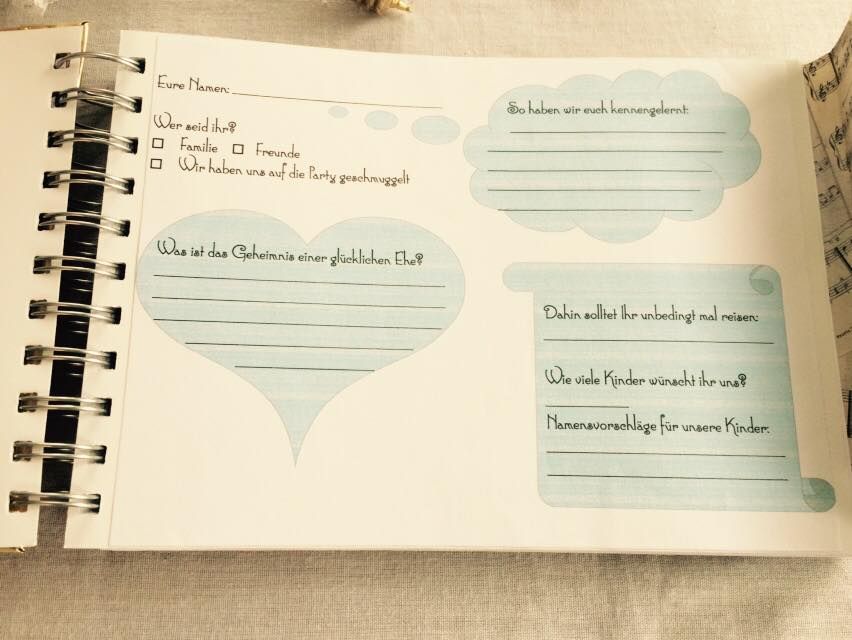 Eure Namen:
Wer seid ihr?
Familie Freunde
Wir haben uns auf die Party geschmuggelt
So haben wir euch kennengelernt:
Was ist das Geheimnis einer glücklichen Ehe?
Dahin solltet Ihr unbedingt mal reisen:
Wie viele Kinder wünscht ihr uns?
Namensvorschläge für unsere Kinder: